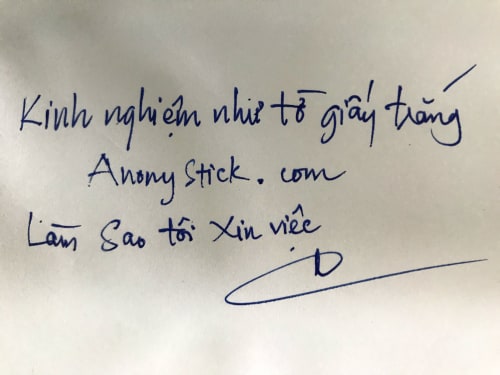 Kinh nghiệm như tờ giấy trắng
AnonyStick.com
Làm sao tôi xin việc